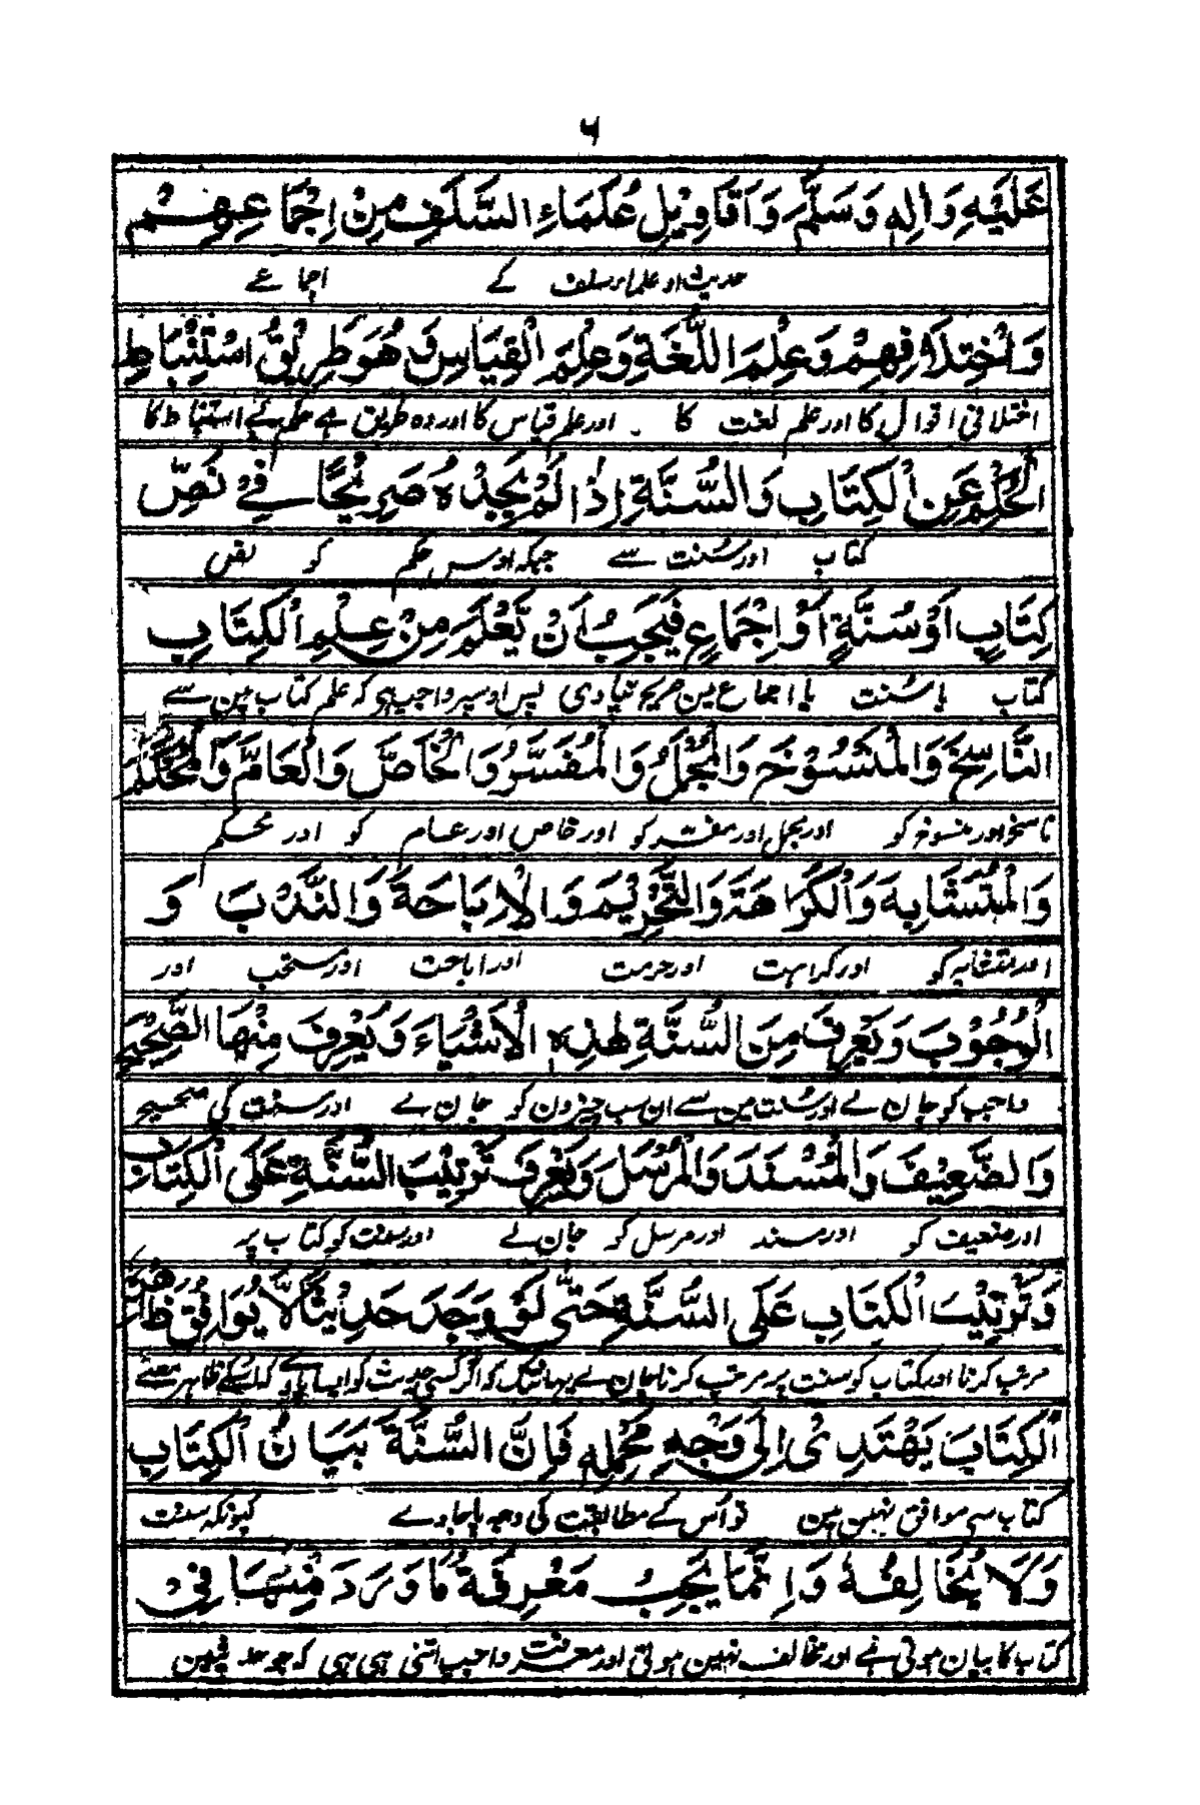 ۶
عَلَيْهِ وَاٰلِهٖ وَسَلَّمَ وَاَقَاوِيْلِ عُلَمَاءِ السَّلَفِ مِنْ اِجْمَاعِهِمْ
حدیث اور علماء سلف کے اجماعے
وَاخْتِلَافِهِمْ وَعِلْمَ اللُّغَةِ وَعِلْمَ الْقِيَاسِ وَهُوَ طَرِيْقُ اسْتِنْبَاطِ
اختلافی اقوال کا اور علم لغت کا ۔ اور علم قیاس کا اور وہ طریق ہے حکم کے استنباط کا
الْحُكْمِ عَنِ الْكِتَابِ وَالسُّنَّةِ اِذَا لَمْ يَجِدْهُ صَرِيْحًا فِيْ نَصِّ
کتاب اور سُنت سے جبکہ اوس حکم کو نص
كِتَابٍ اَوْ سُنَّةٍ اَوْ اِجْمَاعٍ فَيَجِبُ اَنْ يَّعْلَمَ مِنْ عِلْمِ الْكِتَابِ
کتاب یا سُنت یا اجماع مین صریح نپاوی پس اوسپر واجب ہی کہ علم کتاب مین سے
النَّاسِخَ وَالْمَنْسُوْخَ وَالْمُجْمَلَ وَالْمُفَسَّرَ وَالْخَاصَّ وَالْعَامَّ وَالْمُحْكَمَ
ناسخ اور منسوخ کو اور مجمل اور مفسر کو اور خاص اور عام کو اور محکم
وَالْمُتَشَابِهَ وَالْكَرَاهَةَ وَالتَّحْرِيْمَ وَالْاِبَاحَةَ وَالنَّدْبَ وَ
اور متشابہ کو اور کراہت اور حرمت اور اباحت اور مستحب اور
الْوُجُوْبَ وَيَعْرِفَ مِنَ السُّنَّةِ هٰذِهِ الْاَشْيَاءَ وَيَعْرِفَ مِنْهَا الصَّحِيْحَ
واجب کو جان لے اور سُنت مین سے ان سب چیزون کو جان لے اور سنت کی صحیح
وَالضَّعِيْفَ وَالْمُسْنَدَ وَالْمُرْسَلَ وَيَعْرِفَ تَرْتِيْبَ السُّنَّةِ عَلَى الْكِتَابِ
اور ضعیف کو اور مسند اور مرسل کو جان لے اور سنت کو کتاب پر
وَتَرْتِيْبَ الْكِتَابِ عَلَى السُّنَّةِ حَتّٰى لَوْ وَجَدَ حَدِيْثًا لَّا يُوَافِقُ ظَاهِرُهُ
مرتب کرنا اور کتاب کو سنت پر مرتب کرنا جان لے یہانتک کہ اگر کسی حدیث کو ایسا پاوے کہ اسکے ظاہر معنے
الْكِتَابَ يَهْتَدِيْ اِلٰى وَجْهِ مَحْمِلِهٖ فَاِنَّ السُّنَّةَ بَيَانُ الْكِتَابِ
کتاب سے موافق نہین ہین تو اُس کے مطابقت کی وجہ پا جاوے کیونکہ سنت
وَلَا يُخَالِفُهُ وَاِنَّمَا يَجِبُ مَعْرِفَةُ مَا وَرَدَ مِنْهَا فِيْ
کتاب کا بیان ہوتی ہے اور مخالف نہین ہوتی اور معرفت واجب اتنی ہی ہی کہ جو حدیثین